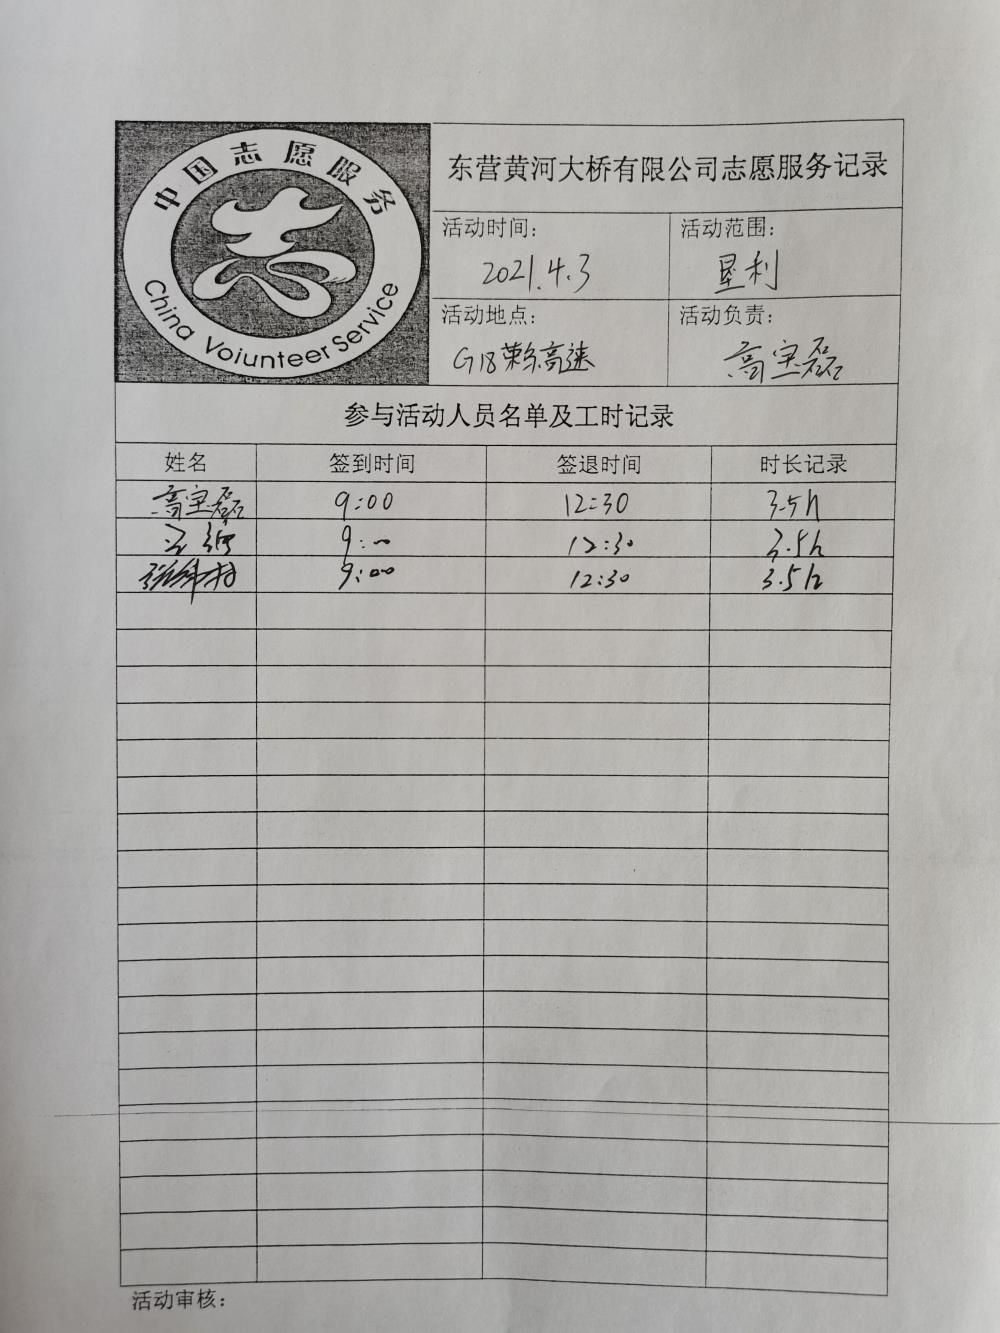 中国志愿服务
China Voiunteer Service
东营黄河大桥有限公司志愿服务记录
活动时间: 活动范围:
2021.4.3 垦利
活动地点: 活动负责:
G18荣乌高速 高宝磊
参与活动人员名单及工时记录
姓名 签到时间 签退时间 时长记录
高宝磊 9:00 12:30 3.5h
9:00 12:30 3.5h
9:00 12:30 3.5h
活动审核: